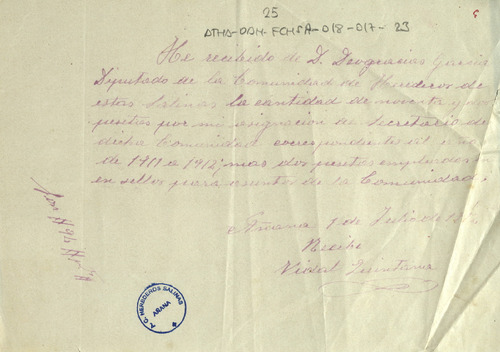 25
ATHA-DAH-FCHSA-018-017-23
He recibido de D. Deogracias Garcia
Diputado de la Comunidad de Herederos de
estas Salinas la cantidad de noventa y
pesetas por mi asignacion de Secretario de
dicha Comunidad correspondiente al
de 1911 a 1912; mas dos pesetas empleadas
en sellos para asuntos de la Comunidad.
Añana 1º de Julio de
Recibi
Vidal Quintana
A. C. HEREDEROS SALINAS
AÑANA